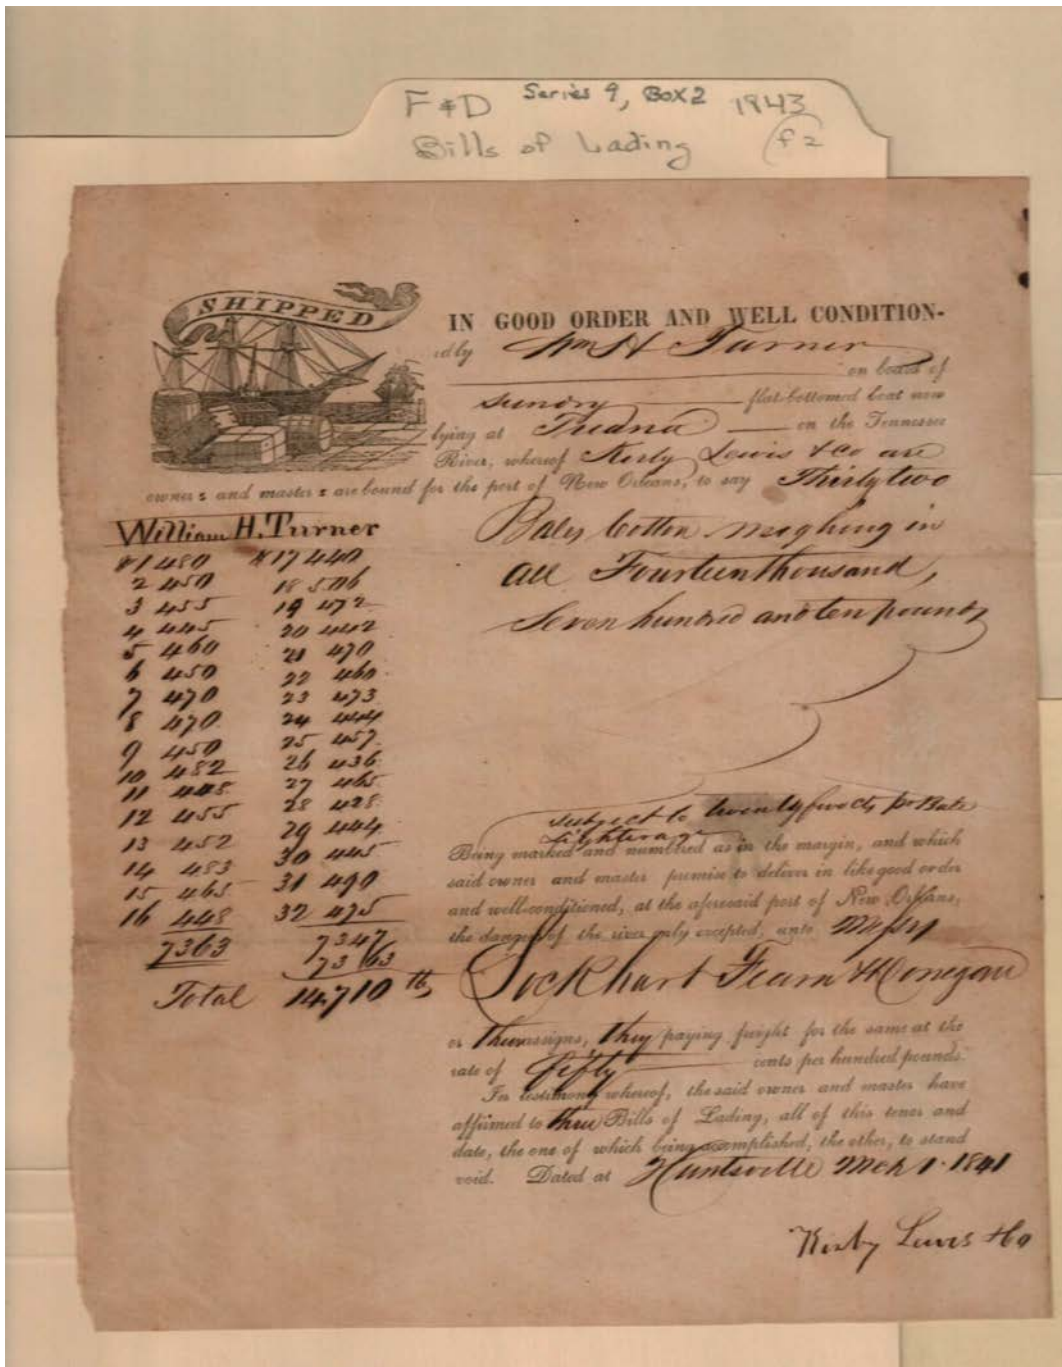 F & D Series 9, Box 2 1843
Bills of Lading f2
SHIPPED
IN GOOD ORDER AND WELL CONDITION-
ed by Wm H Turner
on board of
sundry flat-bottomed boat now
lying at on the Tennessee
River, whereof Kirby Lewis & Co are
owner s and master s are bound for the port of New Orleans, to say Thirty two
William H. Turner
Bales Cotton weighing in
all Fourteen thousand,
Seven hundred and ten pounds
# 1 480 # 17 440
2 450 18 506
3 455 19 472
4 445 20 442
5 460 21 470
6 450 22 460
7 470 23 473
8 470 24 444
9 450 25 457
10 482 26 436
11 448 27 465
12 455 28 428
13 452 29 444
14 483 30 445
15 465 31 490
16 448 32 475
7363 7347
7363
Total 14,710 lbs
subject to twenty five cts pr Bale
Lighterage
Being marked and numbered as in the margin, and which
said owner and master promise to deliver in like good order
and well-conditioned, at the aforesaid port of New Orleans,
the dangers of the river only excepted, unto Messrs
Lockhart Fearn & Donegan
or their assigns, they paying freight for the same at the
rate of fifty cents per hundred pounds.
In testimony whereof, the said owner and master have
affirmed to three Bills of Lading, all of this tenor and
date, the one of which being accomplished, the other, to stand
void. Dated at Huntsville Mch 1. 1841
Kirby Lewis & Co